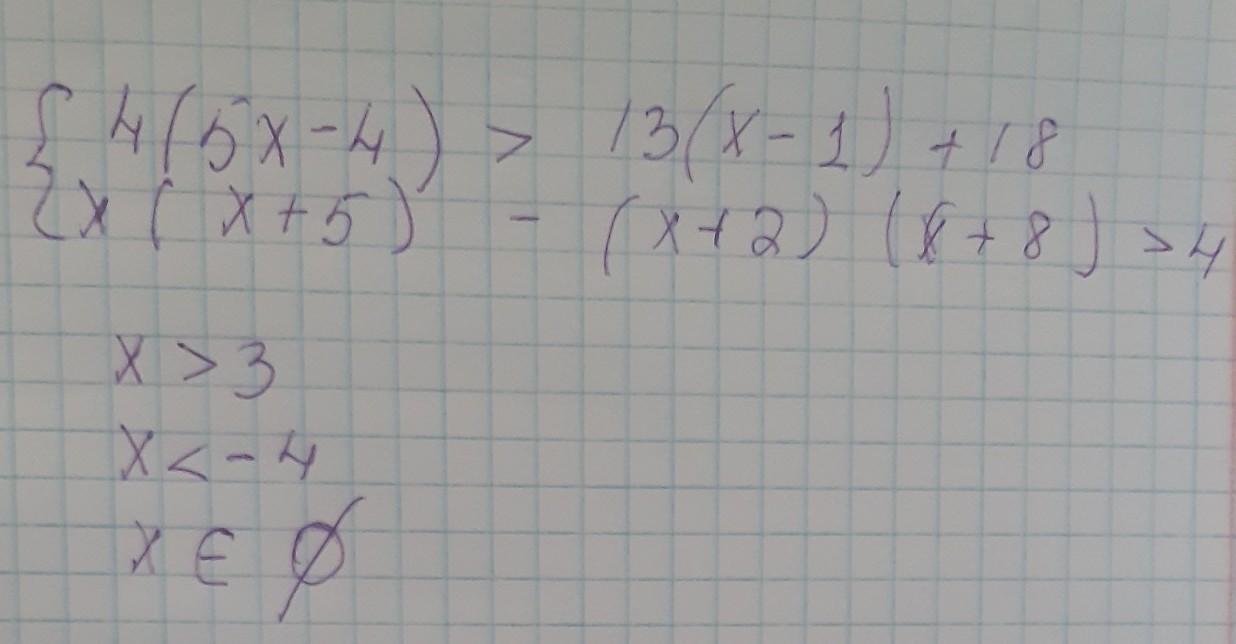 { 4(5x-4) > 13(x-1) + 18
{ x(x+5) - (x+2)(x+8) > 4
x > 3
x < -4
x ∈ ∅